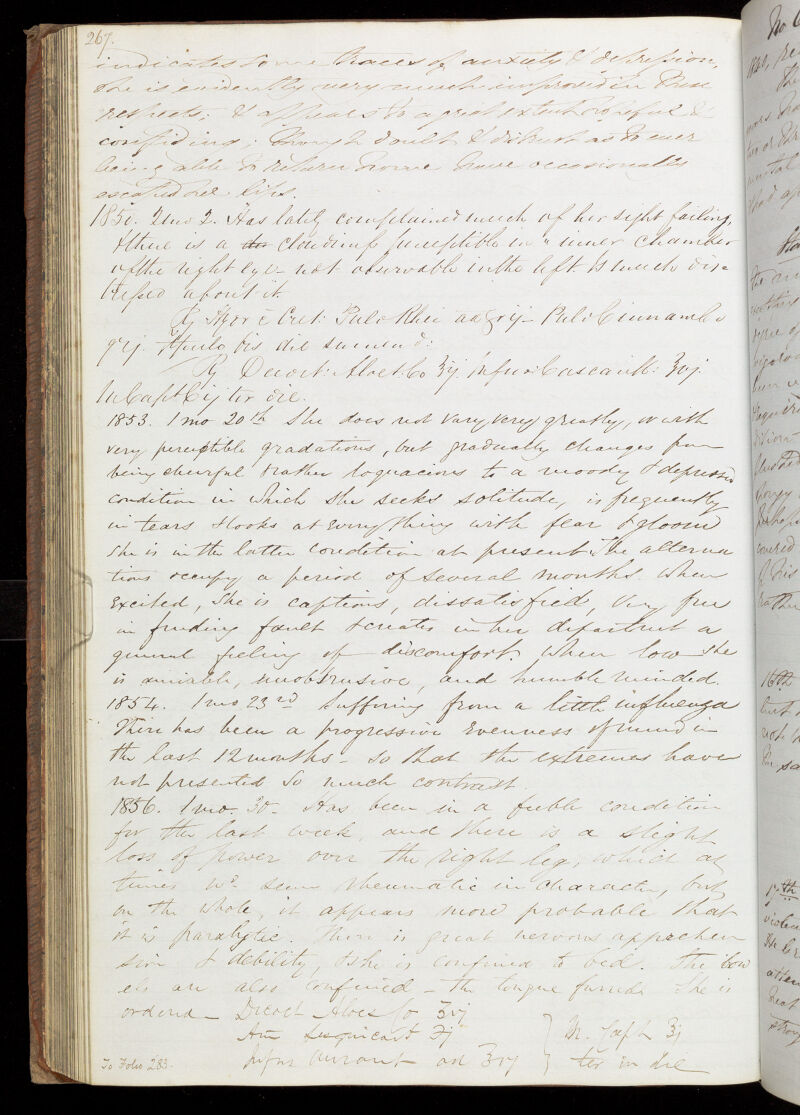 267.
indicates some traces of anxiety & depression,
she is evidently very much improved in these
respects; & appears to a great extent cheerful &
confiding; though doubt & distrust as to ever
being able to return home have occasionally
escaped her lips.
1850. 2mo 2. Has lately complained much of her sight failing,
& there is a clouding perceptible in inner chamber
of the right eye not observable in the left Is much dis=
tressed about it.
Rx Cret. Pulv Rhei aa grij Pulv Cinnamo
grj. bis die
Rx Decoct: Aloes Co ℥ij Infus: Cascarill: ℥vj
M. Capt ter die.
1853. 1 mo 20th She does not vary very greatly, or with
very perceptible gradations, but gradually changes from
being cheerful & rather loquacious to a moody & depressed
condition in which she seeks solitude, is frequently
in tears & looks at everything with fear & gloom
She is in the latter condition at present. The alterna
tions occupy a period of several months. When
excited, she is captious, dissatisfied, very free
in finding fault & creates in her department a
general feeling of discomfort. When low she
is amiable, unobtrusive, and humble minded.
1854. 1 mo 23rd Suffering from a little influenza
There has been a progressive evenness of mind in
the last 12 months - so that the extremes have
not presented so much contrast.
1856. 1 mo. 30 - Has been in a feeble condition
for the last week, and there is a slight
loss of power over the right leg, which at
times wd. seem rheumatic in character, but
on the whole, it appears more probable that
it is paralytic. There is great nervous apprehen
sion & debility, & she is confined to bed. The bow
els are also confined - the tongue furred. She is
ordered - Decoct Aloes Co ℥vj
Am Sesquicarb ʒj
Infus Aurant ad ℥vj } M. Capt ℥j
ter in die
To Folio 283.